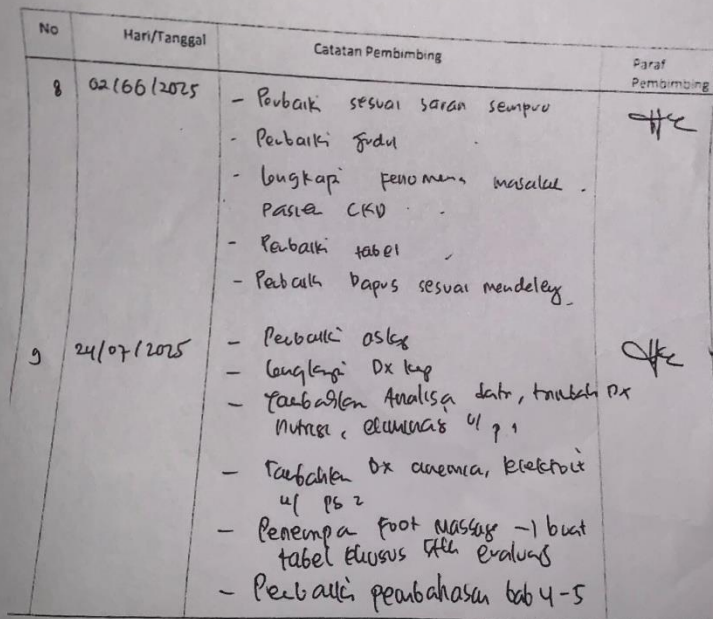 No Hari/Tanggal Catatan Pembimbing Paraf Pembimbing
8 02/06/2025 - Perbaiki sesuai saran sempro
- Perbaiki judul
- Lengkapi fenomena masalah
pasien CKD
- Perbaiki tabel
- Perbaiki dapus sesuai mendeley
9 24/07/2025 - Perbaiki askep
- Lengkapi Dx kep
- Tambahkan Analisa data, tambah Dx
nutrisi, eliminasi u/ p 1
- Tambahkan Dx anemia, elektrolit
u/ ps 2
- Penerapan Foot Massage -> buat
tabel khusus evaluasi
- Perbaiki pembahasan bab 4-5